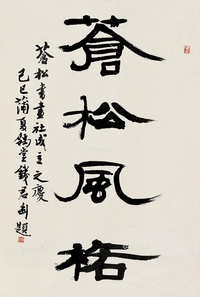 蒼松風格
蒼松書畫社成立之慶
己巳蒲夏豫堂錢君匋題